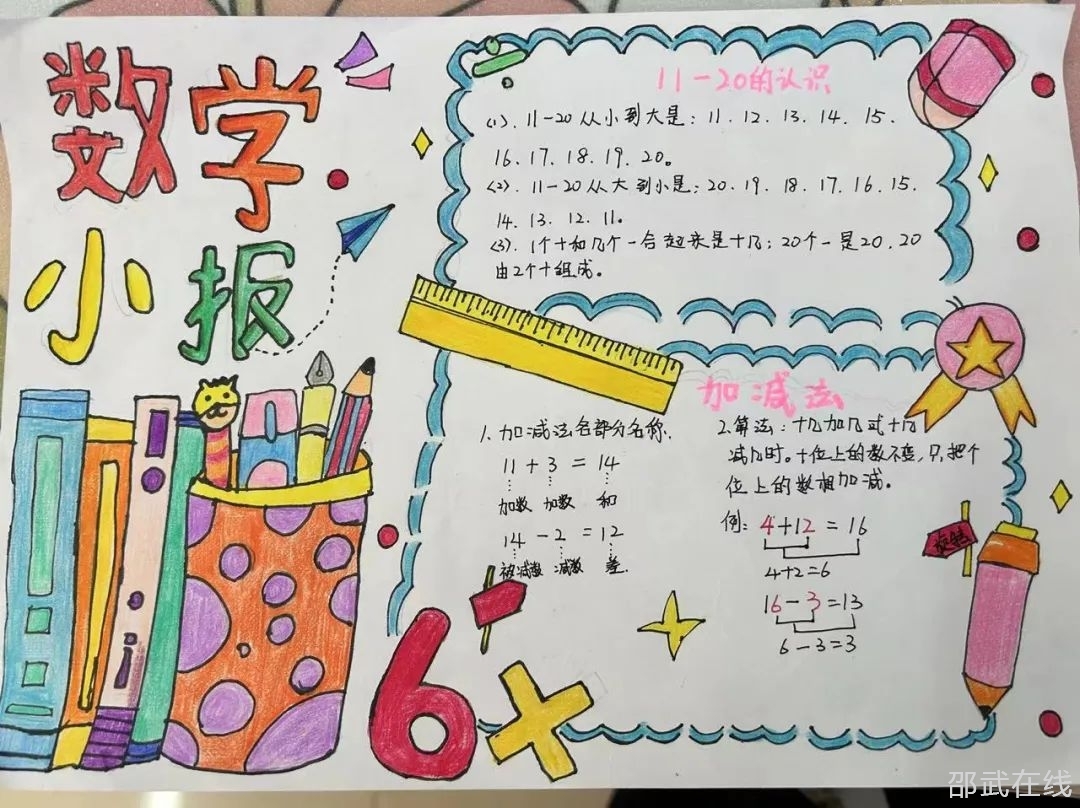 数学
小报
11-20的认识
(1)、11-20从小到大是:11、12、13、14、15、
16、17、18、19、20。
(2)、11-20从大到小是:20、19、18、17、16、15、
14、13、12、11。
(3)、1个十和几个一合起来是十几;20个一是20,20
由2个十组成。
加减法
1、加减法各部分名称.
11+3=14
加数 加数 和
14-2=12
被减数 减数 差
2、算法:十几加几或十几
减几时。十位上的数不变,只把个
位上的数相加减。
例:4+12=16
4+2=6
16-3=13
6-3=3
6×
邵武在线